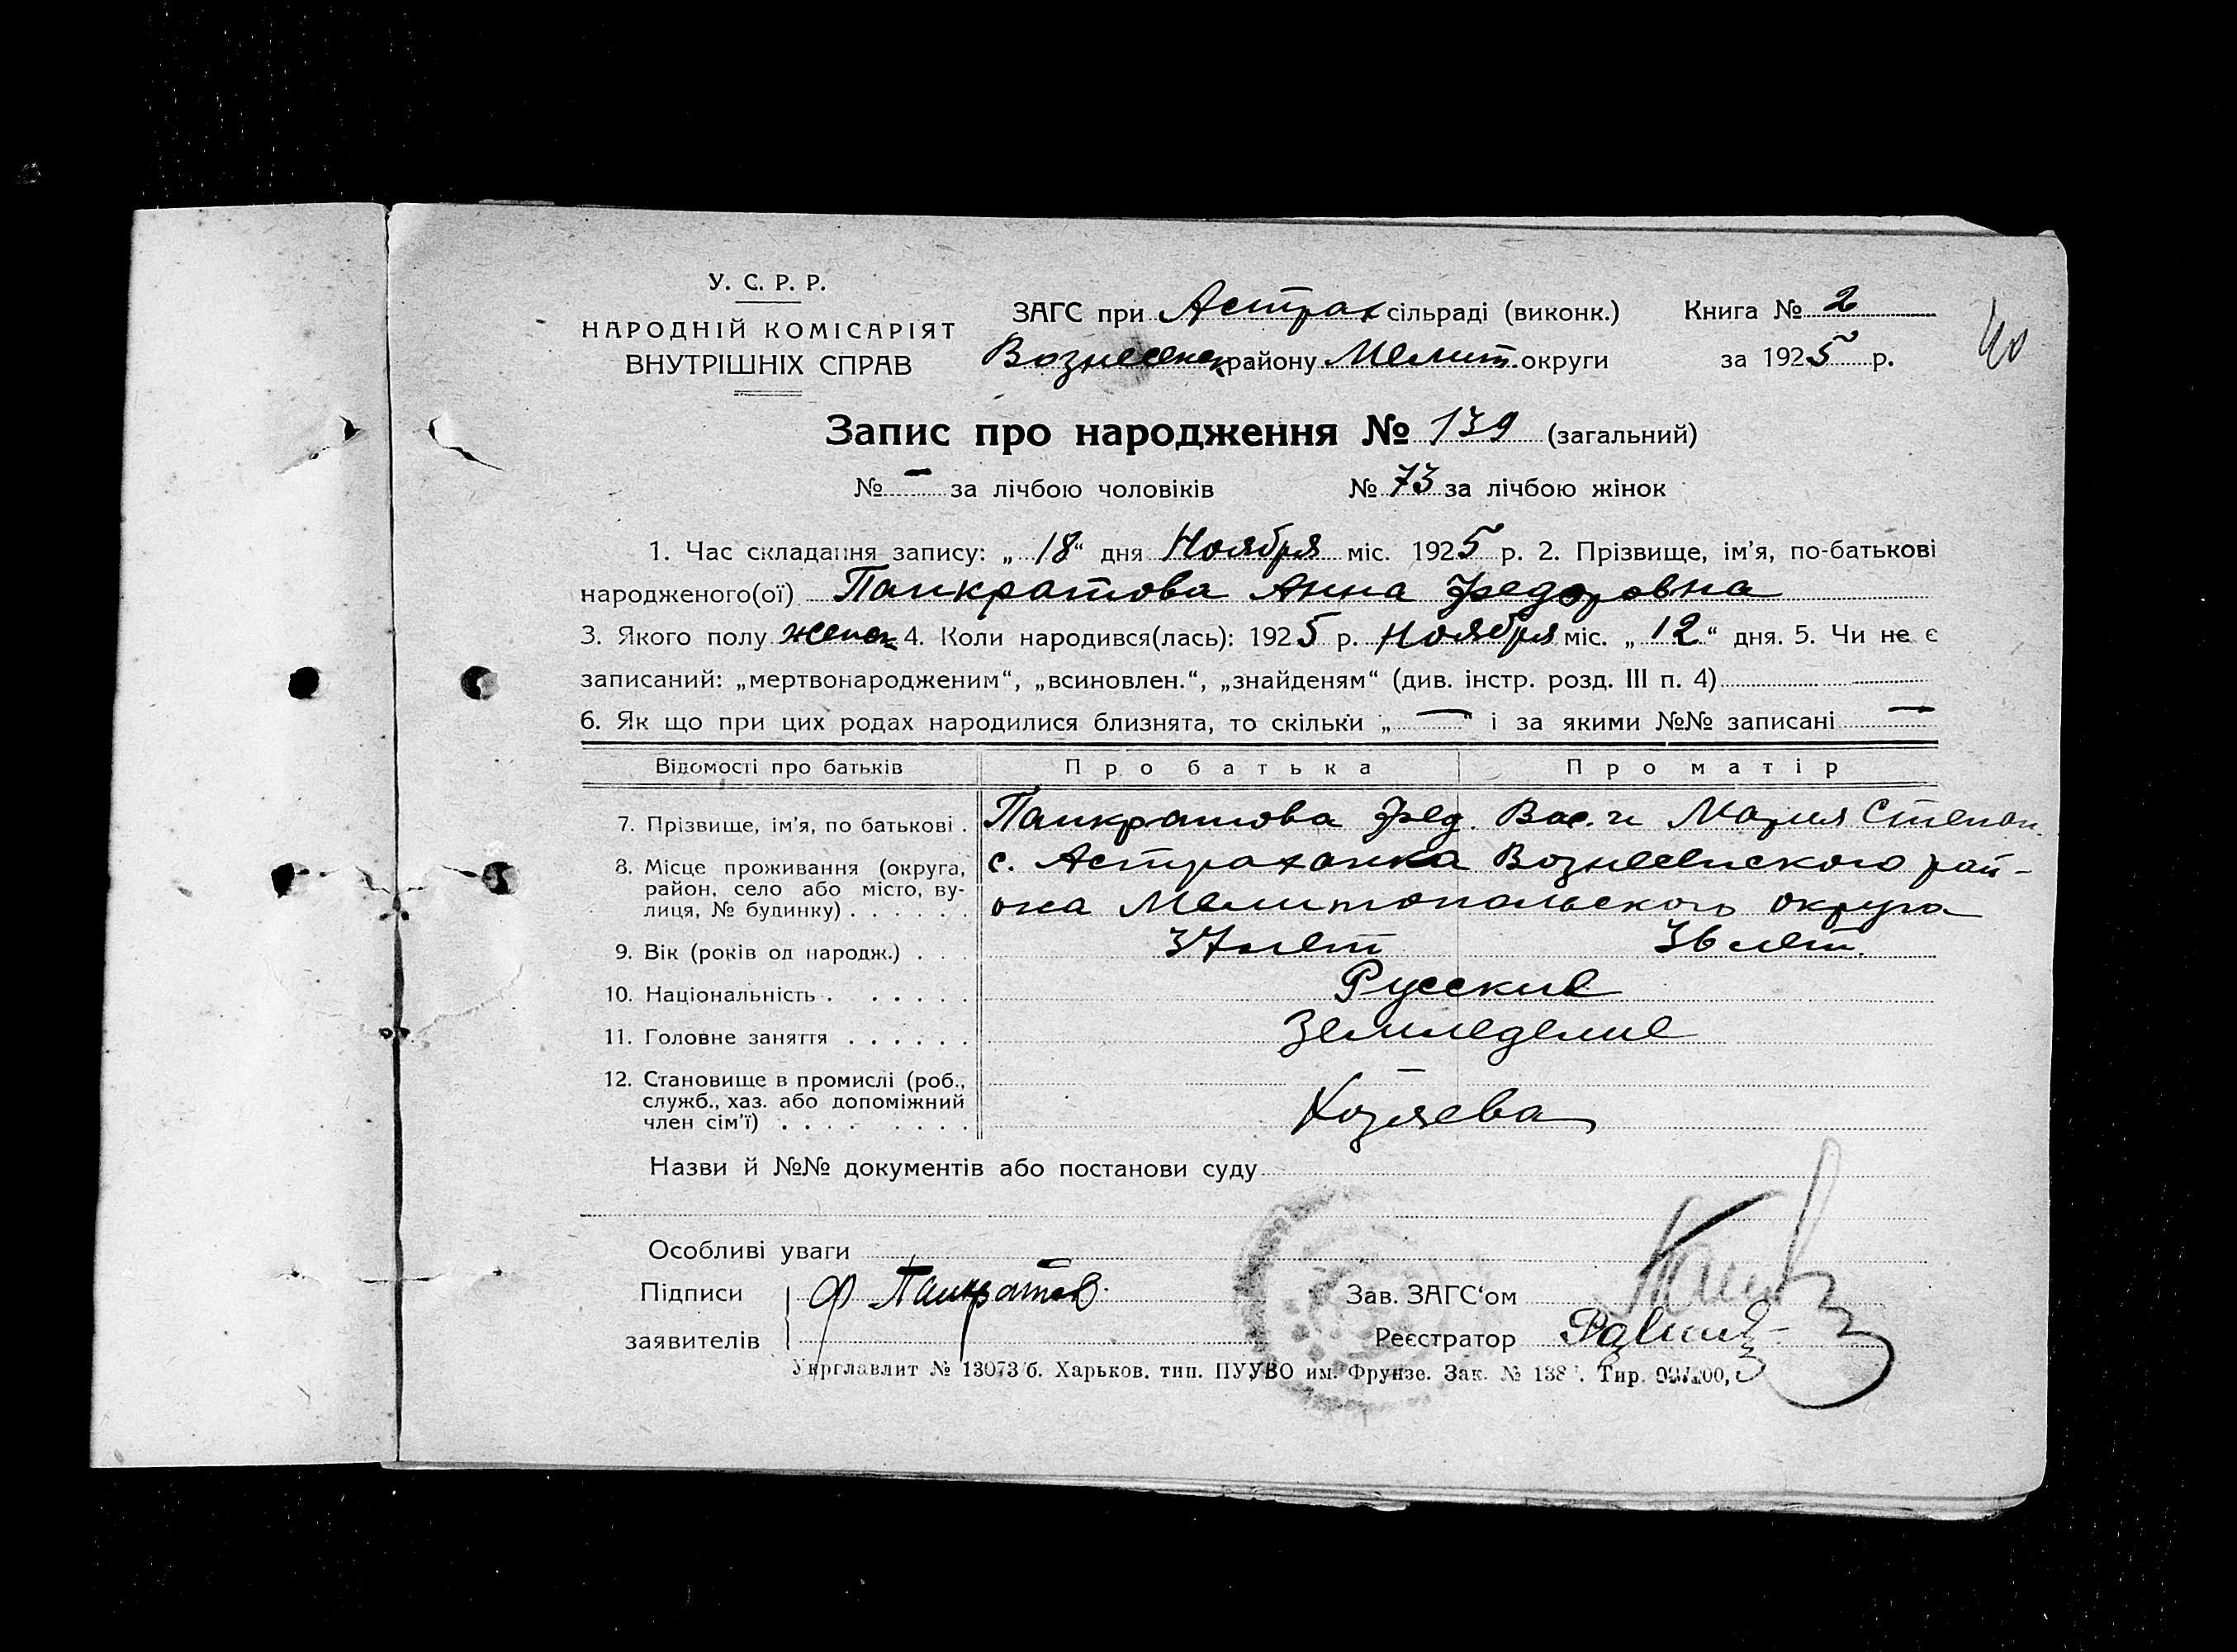 У. С. Р. Р.
НАРОДНІЙ КОМІСАРІЯТ
ВНУТРІШНІХ СПРАВ
ЗАГС при Астрах сільраді (виконк.) Книга № 2
Вознесенск району Мелит. округи за 1925 р.
40
Запис про народження № 139 (загальний)
№ — за лічбою чоловіків № 73 за лічбою жінок
1. Час складання запису: „ 18 “ дня Ноября міс. 1925 р. 2. Прізвище, ім’я, по-батькові
народженого(ої) Панкратова Анна Федоровна
3. Якого полу женск 4. Коли народився(лась): 1925 р. Ноября міс. „ 12 “ дня. 5. Чи не є
записаний: „мертвонародженим“, „всиновлен.“, „знайденям“ (див. інстр. розд. III п. 4)
6. Як що при цих родах народилися близнята, то скільки „ — “ і за якими №№ записані —
Відомості про батьків Про батька Про матір
7. Прізвище, ім’я, по батькові . Панкратова Фед. Вас. и Мария Степан.
8. Місце проживання (округа, с. Астраханка Вознесенского рай-
район, село або місто, ву-
лиця, № будинку) . . . . . . она Мелитопольского округа
9. Вік (років од народж.) . . . 37 лет 36 лет.
10. Національність . . . . . . Русские
11. Головне заняття . . . . . . Земледелие
12. Становище в промислі (роб.,
служб., хаз. або допоміжний
член сім’ї) . . . . . . . . . Хозяева
Назви й №№ документів або постанови суду
Особливі уваги
Підписи Ф Панкратов. Зав. ЗАГС‘ом
заявителів Реєстратор
Укрглавлит № 13073/б. Харьков. тип. ПУУВО им. Фрунзе. Зак. № Тир.